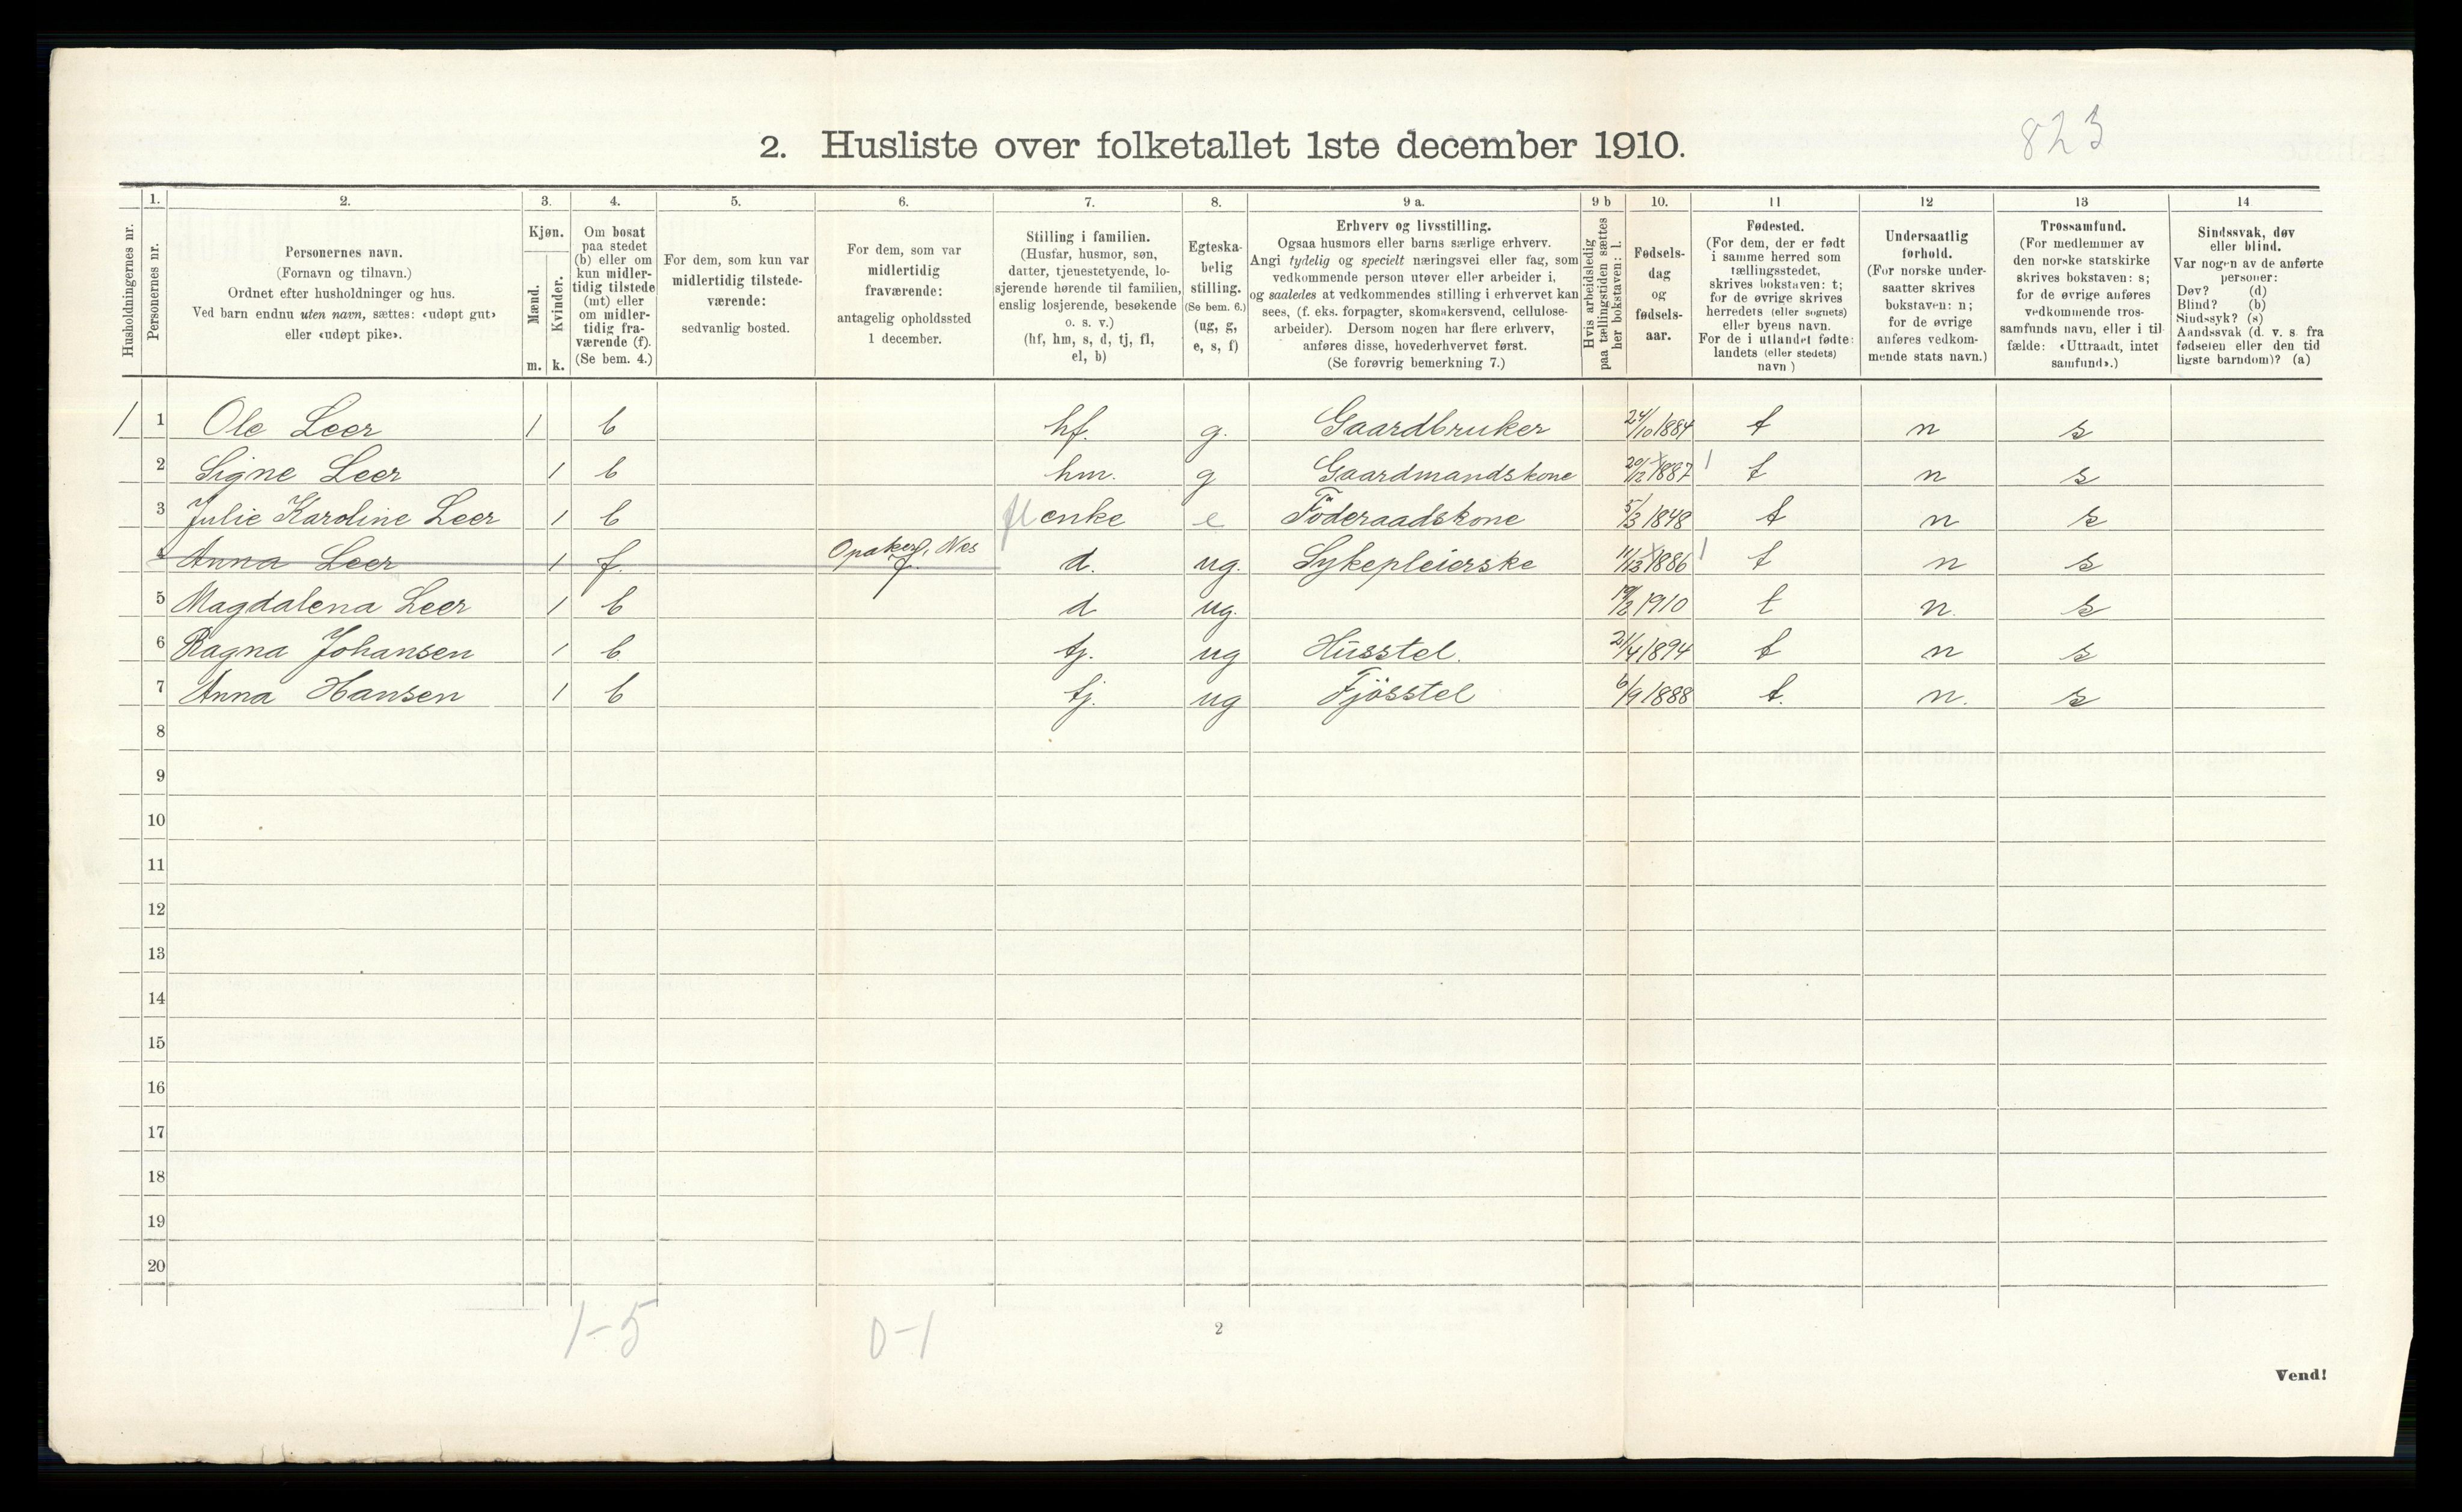 823
2. Husliste over folketallet 1ste december 1910.
Husholdningernes nr.
1.
Personernes nr.
2.
Personernes navn.
(Fornavn og tilnavn.)
Ordnet efter husholdninger og hus.
Ved barn endnu uten navn, sættes: «udøpt gut»
eller «udøpt pike».
3.
Kjøn.
Mænd.
Kvinder.
m. k.
4.
Om bosat
paa stedet
(b) eller om
kun midler-
tidig tilstede
(mt) eller
om midler-
tidig fra-
værende (f).
(Se bem. 4.)
5.
For dem, som kun var
midlertidig tilstede-
værende:
sedvanlig bosted.
6.
For dem, som var
midlertidig
fraværende:
antagelig opholdssted
1 december.
7.
Stilling i familien.
(Husfar, husmor, søn,
datter, tjenestetyende, lo-
sjerende hørende til familien,
enslig losjerende, besøkende
o. s. v.)
(hf, hm, s, d, tj, fl,
el, b)
8.
Egteska-
belig
stilling.
(Se bem. 6.)
(ug, g,
e, s, f)
9 a.
Erhverv og livsstilling.
Ogsaa husmors eller barns særlige erhverv.
Angi tydelig og specielt næringsvei eller fag, som
vedkommende person utøver eller arbeider i,
og saaledes at vedkommendes stilling i erhvervet kan
sees, (f. eks. forpagter, skomakersvend, cellulose-
arbeider). Dersom nogen har flere erhverv,
anføres disse, hovederhvervet først.
(Se forøvrig bemerkning 7.)
9 b
Hvis arbeidsledig
paa tællingstiden sættes
her bokstaven: l.
10.
Fødsels-
dag
og
fødsels-
aar.
11
Fødested.
(For dem, der er født
i samme herred som
tællingsstedet,
skrives bokstaven: t;
for de øvrige skrives
herredets (eller sognets)
eller byens navn.
For de i utlandet fødte:
landets (eller stedets)
navn )
12
Undersaatlig
forhold.
(For norske under-
saatter skrives
bokstaven: n;
for de øvrige
anføres vedkom-
mende stats navn.)
13
Trossamfund.
(For medlemmer av
den norske statskirke
skrives bokstaven: s;
for de øvrige anføres
vedkommende tros-
samfunds navn, eller i til-
fælde: «Uttraadt, intet
samfund».)
14
Sindssvak, døv
eller blind.
Var nogen av de anførte
personer:
Døv? (d)
Blind? (b)
Sindssyk? (s)
Aandssvak (d. v. s. fra
fødselen eller den tid-
ligste barndom)? (a)
1 1 Ole Leer 1 b hf. g. Gaardbruker 24/10 1884 t n s
2 Signe Leer 1 b hm. g Gaardmandskone 20/12 1887 t n s
3 Julie Karoline Leer 1 b fl enke e Føderaadskone 5/3 1848 t n s
4 Anna Leer 1 f. Opaker, Nes d. ug. Sykepleierske 1886 t n s
5 Magdalena Leer 1 b d ug. 1910 t n. s
6 Ragna Johansen 1 b tj. ug Husstel. 21/4 1894 t n s
7 Anna Hansen 1 b tj. ug Fjøsstel 6/9 1888 t. n. s
8
9
10
11
12
13
14
15
16
17
18
19
20
1-5 0-1
2
Vend!